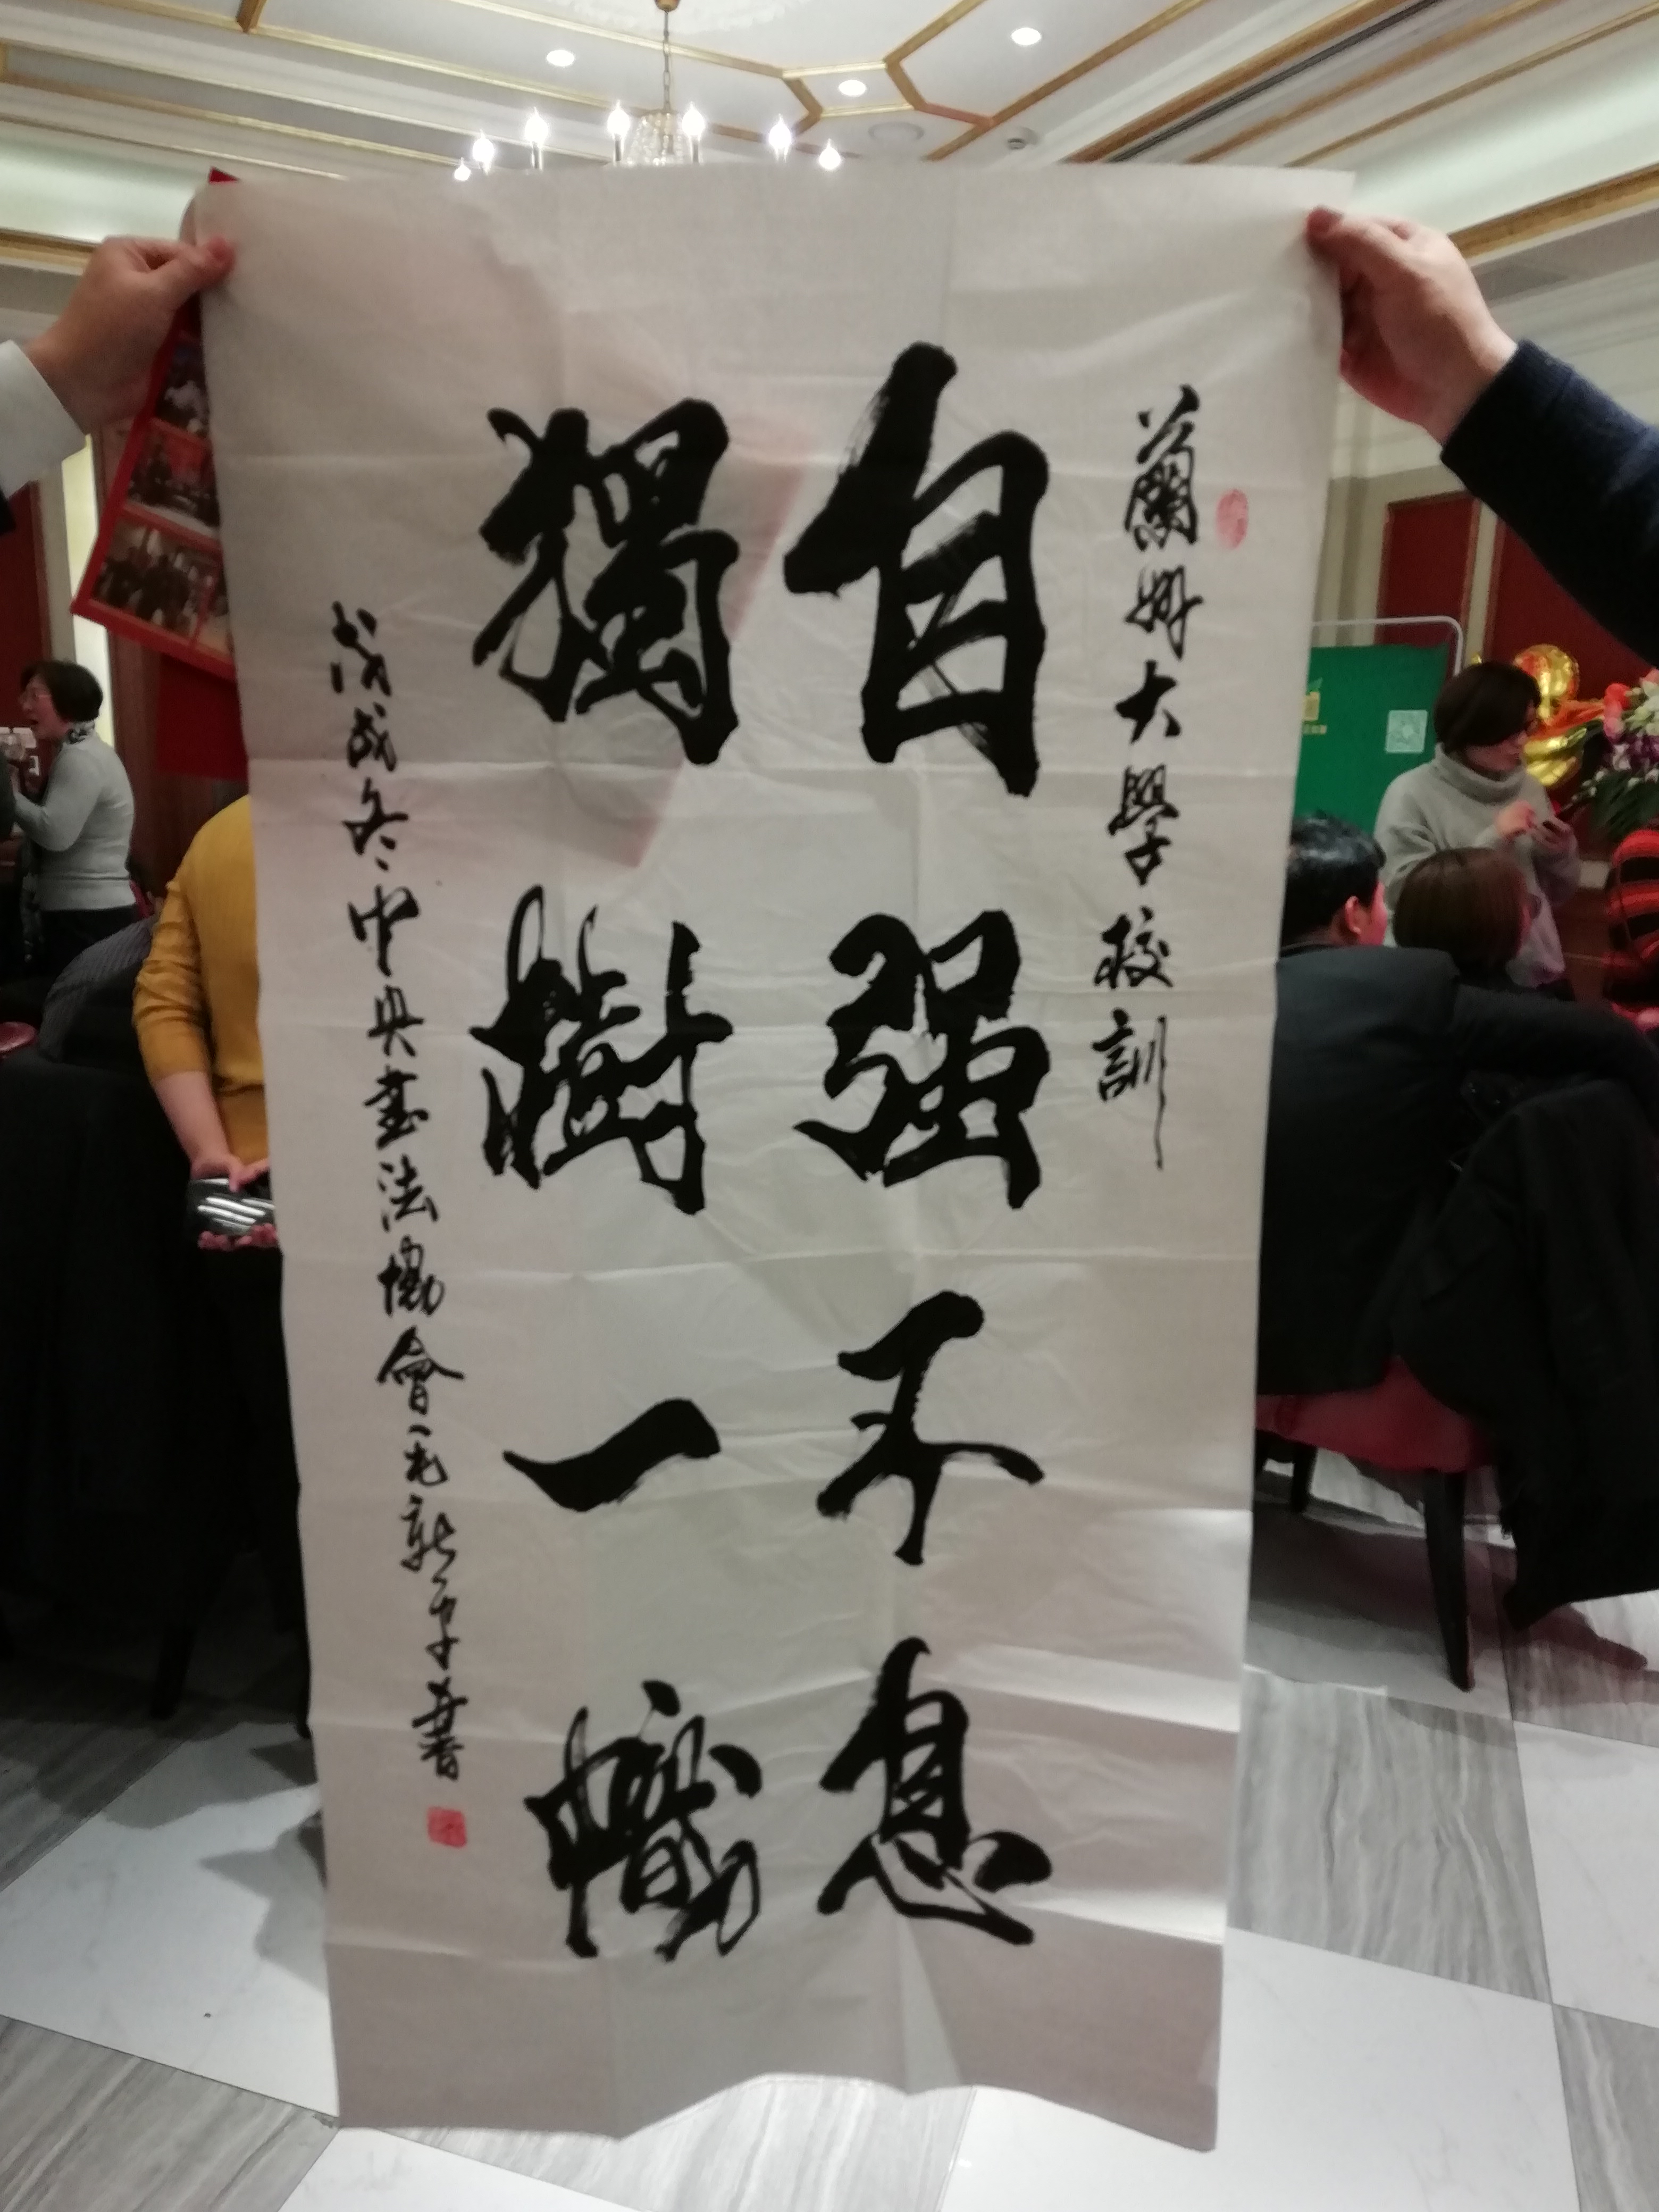 蘭州大學校訓
自强不息
獨樹一幟
戊戌冬中央書法協會毛新平書